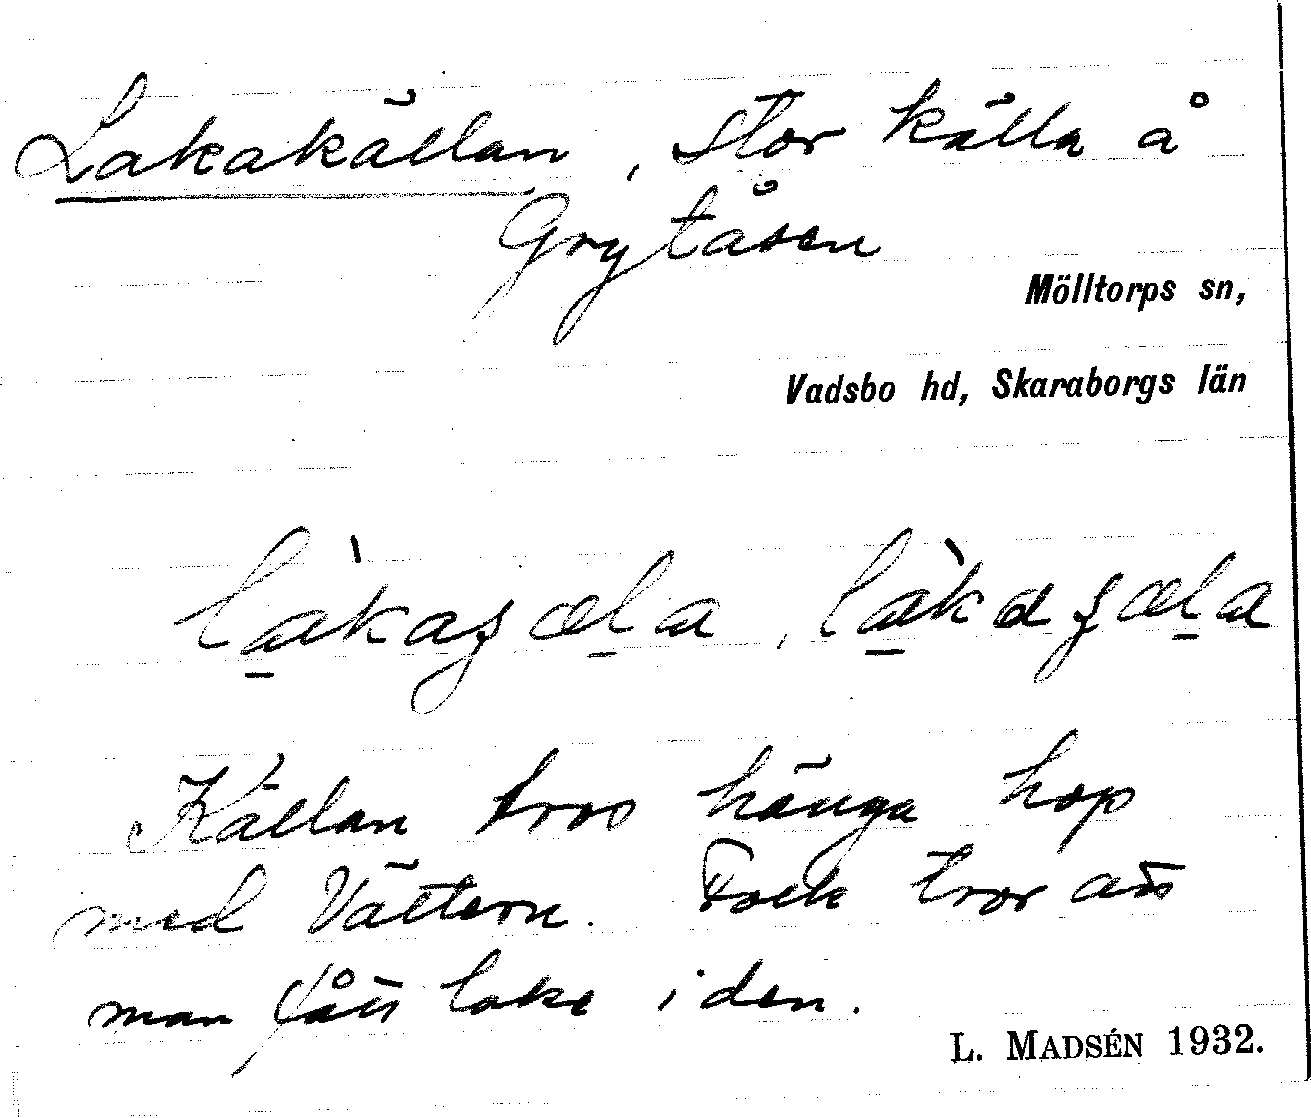 Lakakällan, stor källa å
Grytåsen
Mölltorps sn,
Vadsbo hd, Skaraborgs län
Källan tros hänga hop
med Vättern. Folk tror att
man fått lake i den.
L. MADSÉN 1932.